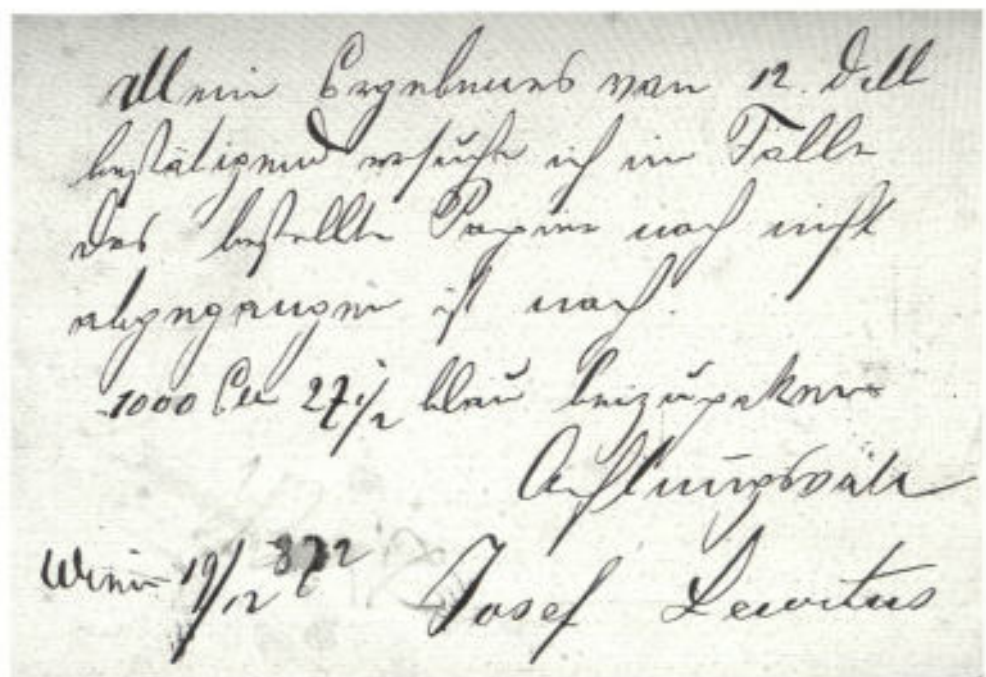 Mein Ergebenes vom 12. dM
bestätigend ersuche ich im Falle
das bestellte Papier noch nicht
abgegangen ist noch.
1000 27 1/2 blau beizupaken
Achtungsvoll
Wien 19/12 872 Josef Lewitus